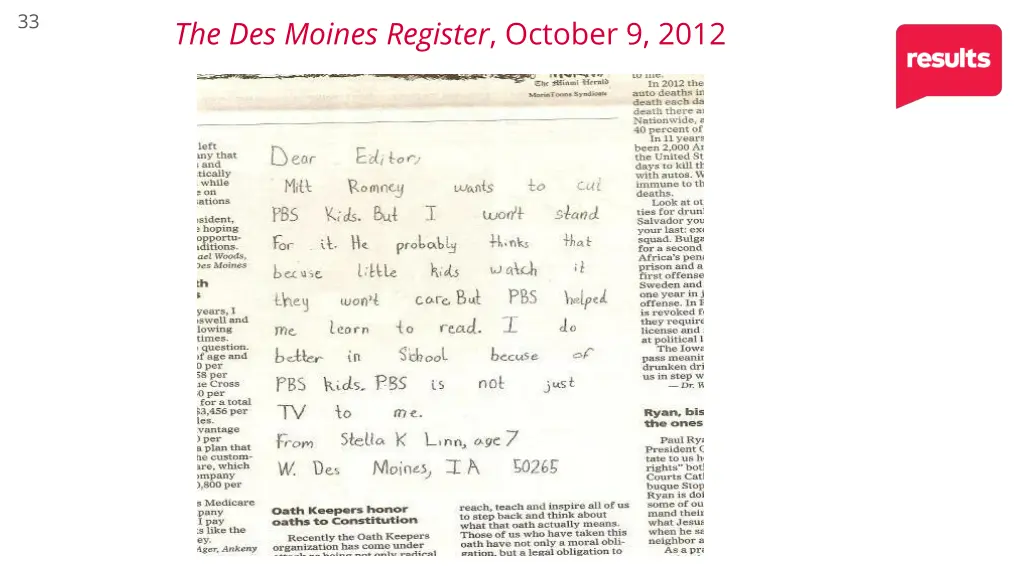 33
The Des Moines Register, October 9, 2012
results
The Miami Herald
MarinToons Syndicate
left
any that
and
tically
while
e on
sations
sident,
e hoping
opportu-
ditions.
ael Woods,
Des Moines
th
s
years, I
swell and
lowing
times.
question.
of age and
0 per
58 per
ue Cross
0 per
for a total
$3,456 per
les.
vantage
0 per
a plan that
he custom-
are, which
ompany
0,800 per
s Medicare
pany
I pay
s like the
ey.
Ager, Ankeny
Dear Editor,
Mitt Romney wants to cut
PBS Kids. But I won't stand
For it. He probably thinks that
becuse little kids watch it
they won't care. But PBS helped
me learn to read. I do
better in School becuse of
PBS kids. PBS is not just
TV to me.
From Stella K Linn, age 7
W. Des Moines, IA 50265
Oath Keepers honor
oaths to Constitution
Recently the Oath Keepers
organization has come under
reach, teach and inspire all of us
to step back and think about
what that oath actually means.
Those of us who have taken this
oath have not only a moral obli-
gation, but a legal obligation to
to me.
In 2012 the
auto deaths in
death each da
death there a
Nationwide, a
40 percent of
In 11 years
been 2,000 A
the United St
days to kill th
with autos. W
immune to th
deaths.
Look at ot
ties for drun
Salvador you
your last: exe
squad. Bulga
for a second
Africa's pena
prison and a
first offense
Sweden and
one year in j
offense. In F
is revoked f
they require
license and
at political l
The Iowa
pass meanin
drunken dri
us in step w
— Dr. W
Ryan, bis
the ones
Paul Rya
President O
tate to us h
rights" bot
Courts Cat
buque Stop
Ryan is doi
some of ou
mand their
what Jesus
when he sa
neighbor a
As a pra